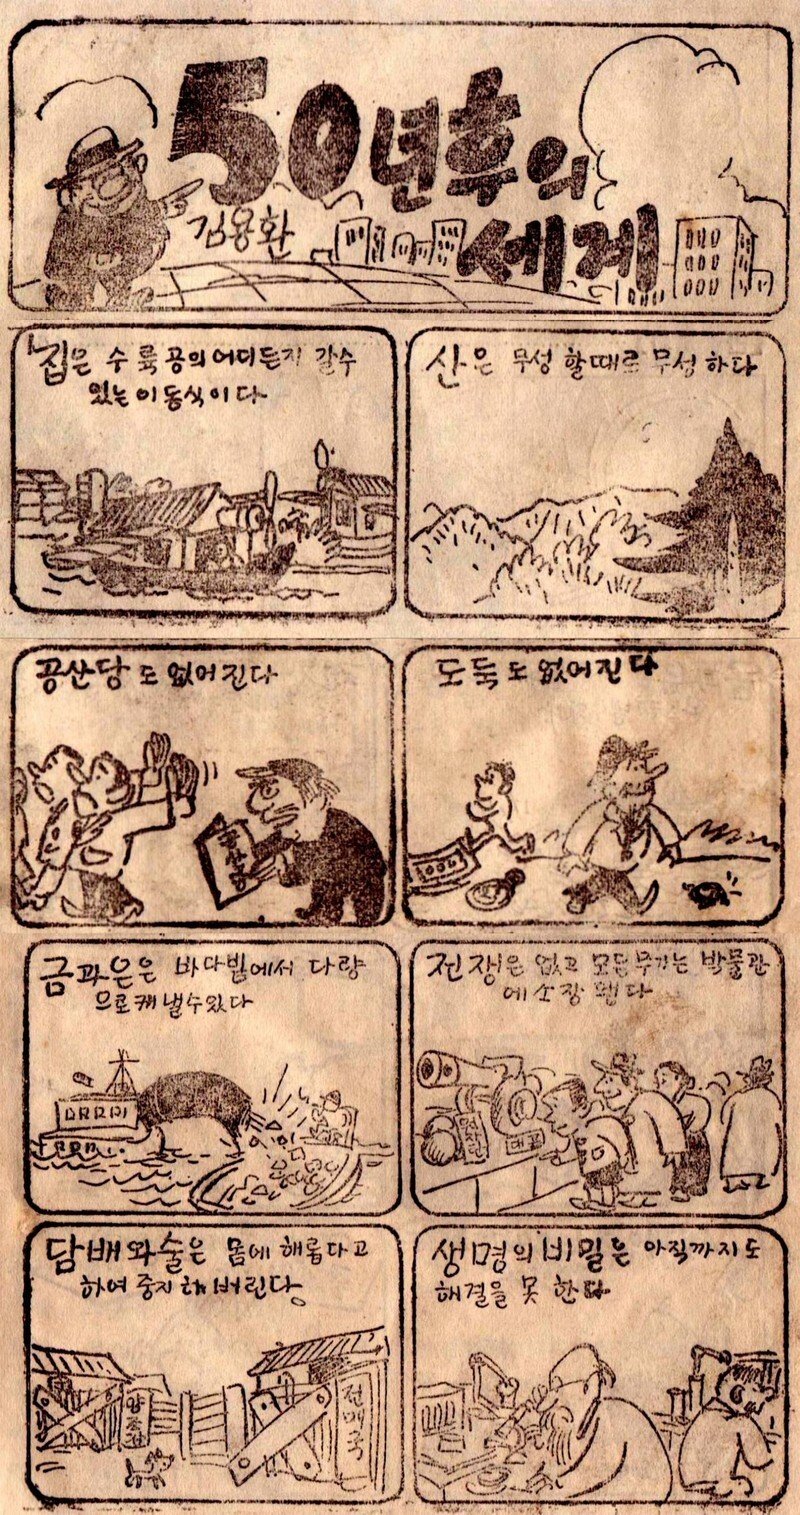 50년후의
세계
김용환
집은 수륙공의어디든지 갈수
있는이동식이다
산은 무성할때로 무성하다
공산당도없어진다
공산당
도둑도없어진다
금과은은 바다밑에서 다량
으로캐낼수있다
전쟁은 없고 모든무기는 박물관
에소장됐다
대포
담배와술은 몸에 해롭다고
하여 중지해버린다.
양조장
전매국
생명의비밀은 아직까지도
해결을 못 한다